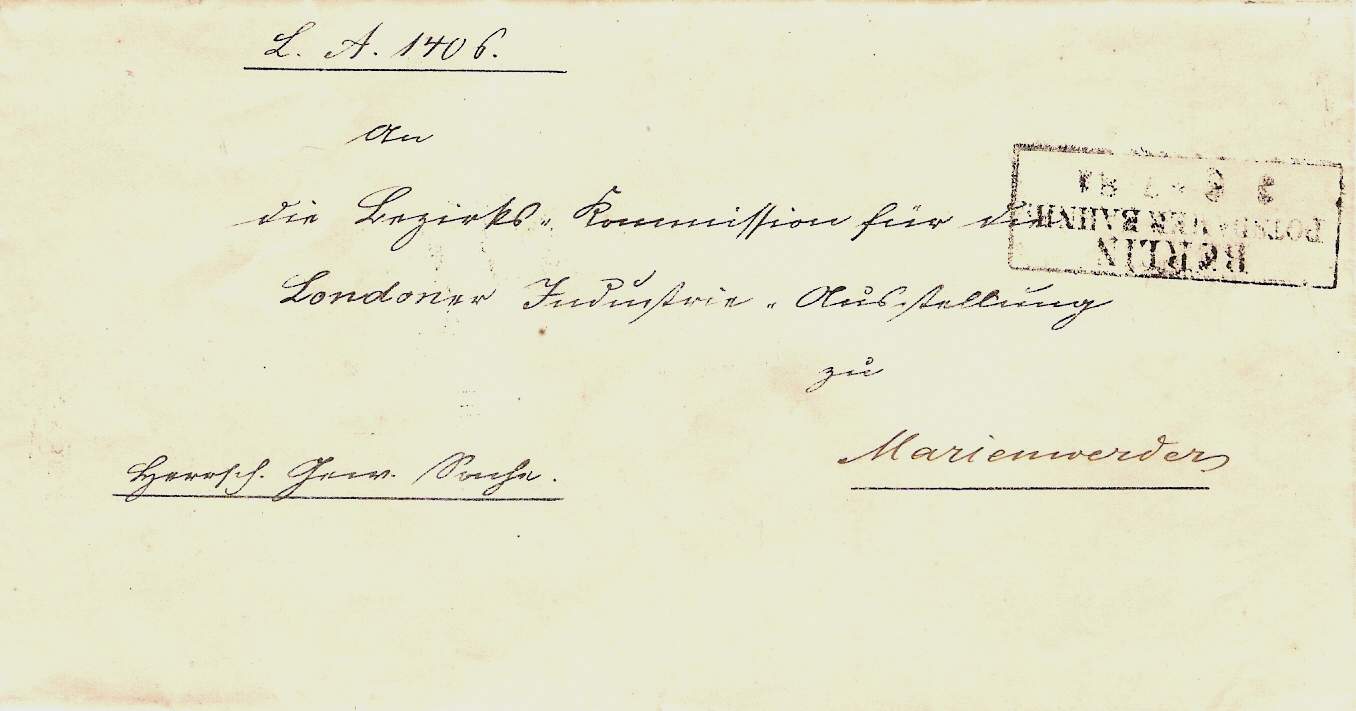 L. A. 1406.
An
die Bezirks-Kommission für die
Londoner Industrie-Ausstellung
zu
Marienwerder
Herrsch. Gew. Sache.
BERLIN
POTSDAMER BAHNH